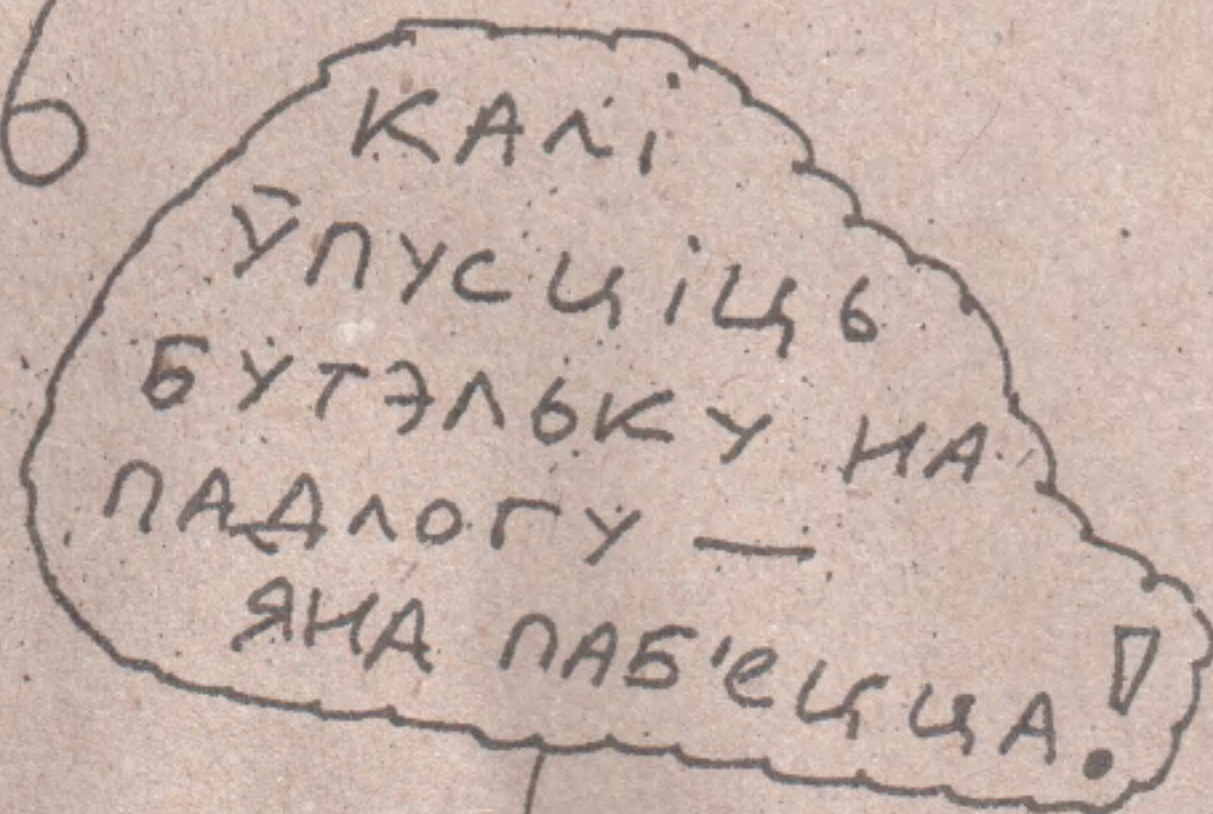 КАЛІ
ЎПУСЦІЦЬ
БУТЭЛЬКУ НА
ПАДЛОГУ —
ЯНА ПАБ'ЕЦЦА!